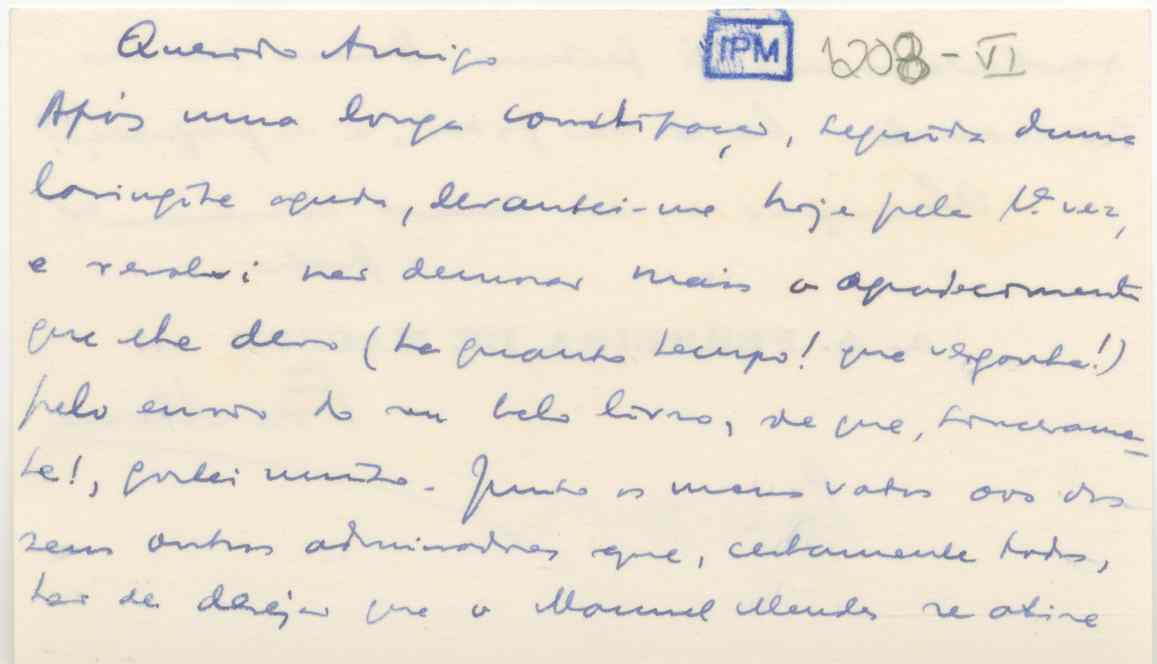 Querido Amigo
IPM 1208-VI
Após uma longa constipação, seguida duma
laringite aguda, levantei-me hoje pela 1ª vez,
e resolvi não demorar mais o agradecimento
que lhe devo (há quanto tempo! que vergonha!)
pelo envio do seu belo livro, de que, sincerame-
te!, gostei muito. Junto os meus votos aos dos
seus outros admiradores que, certamente todos,
hão de desejar que o Manuel Mendes se atire